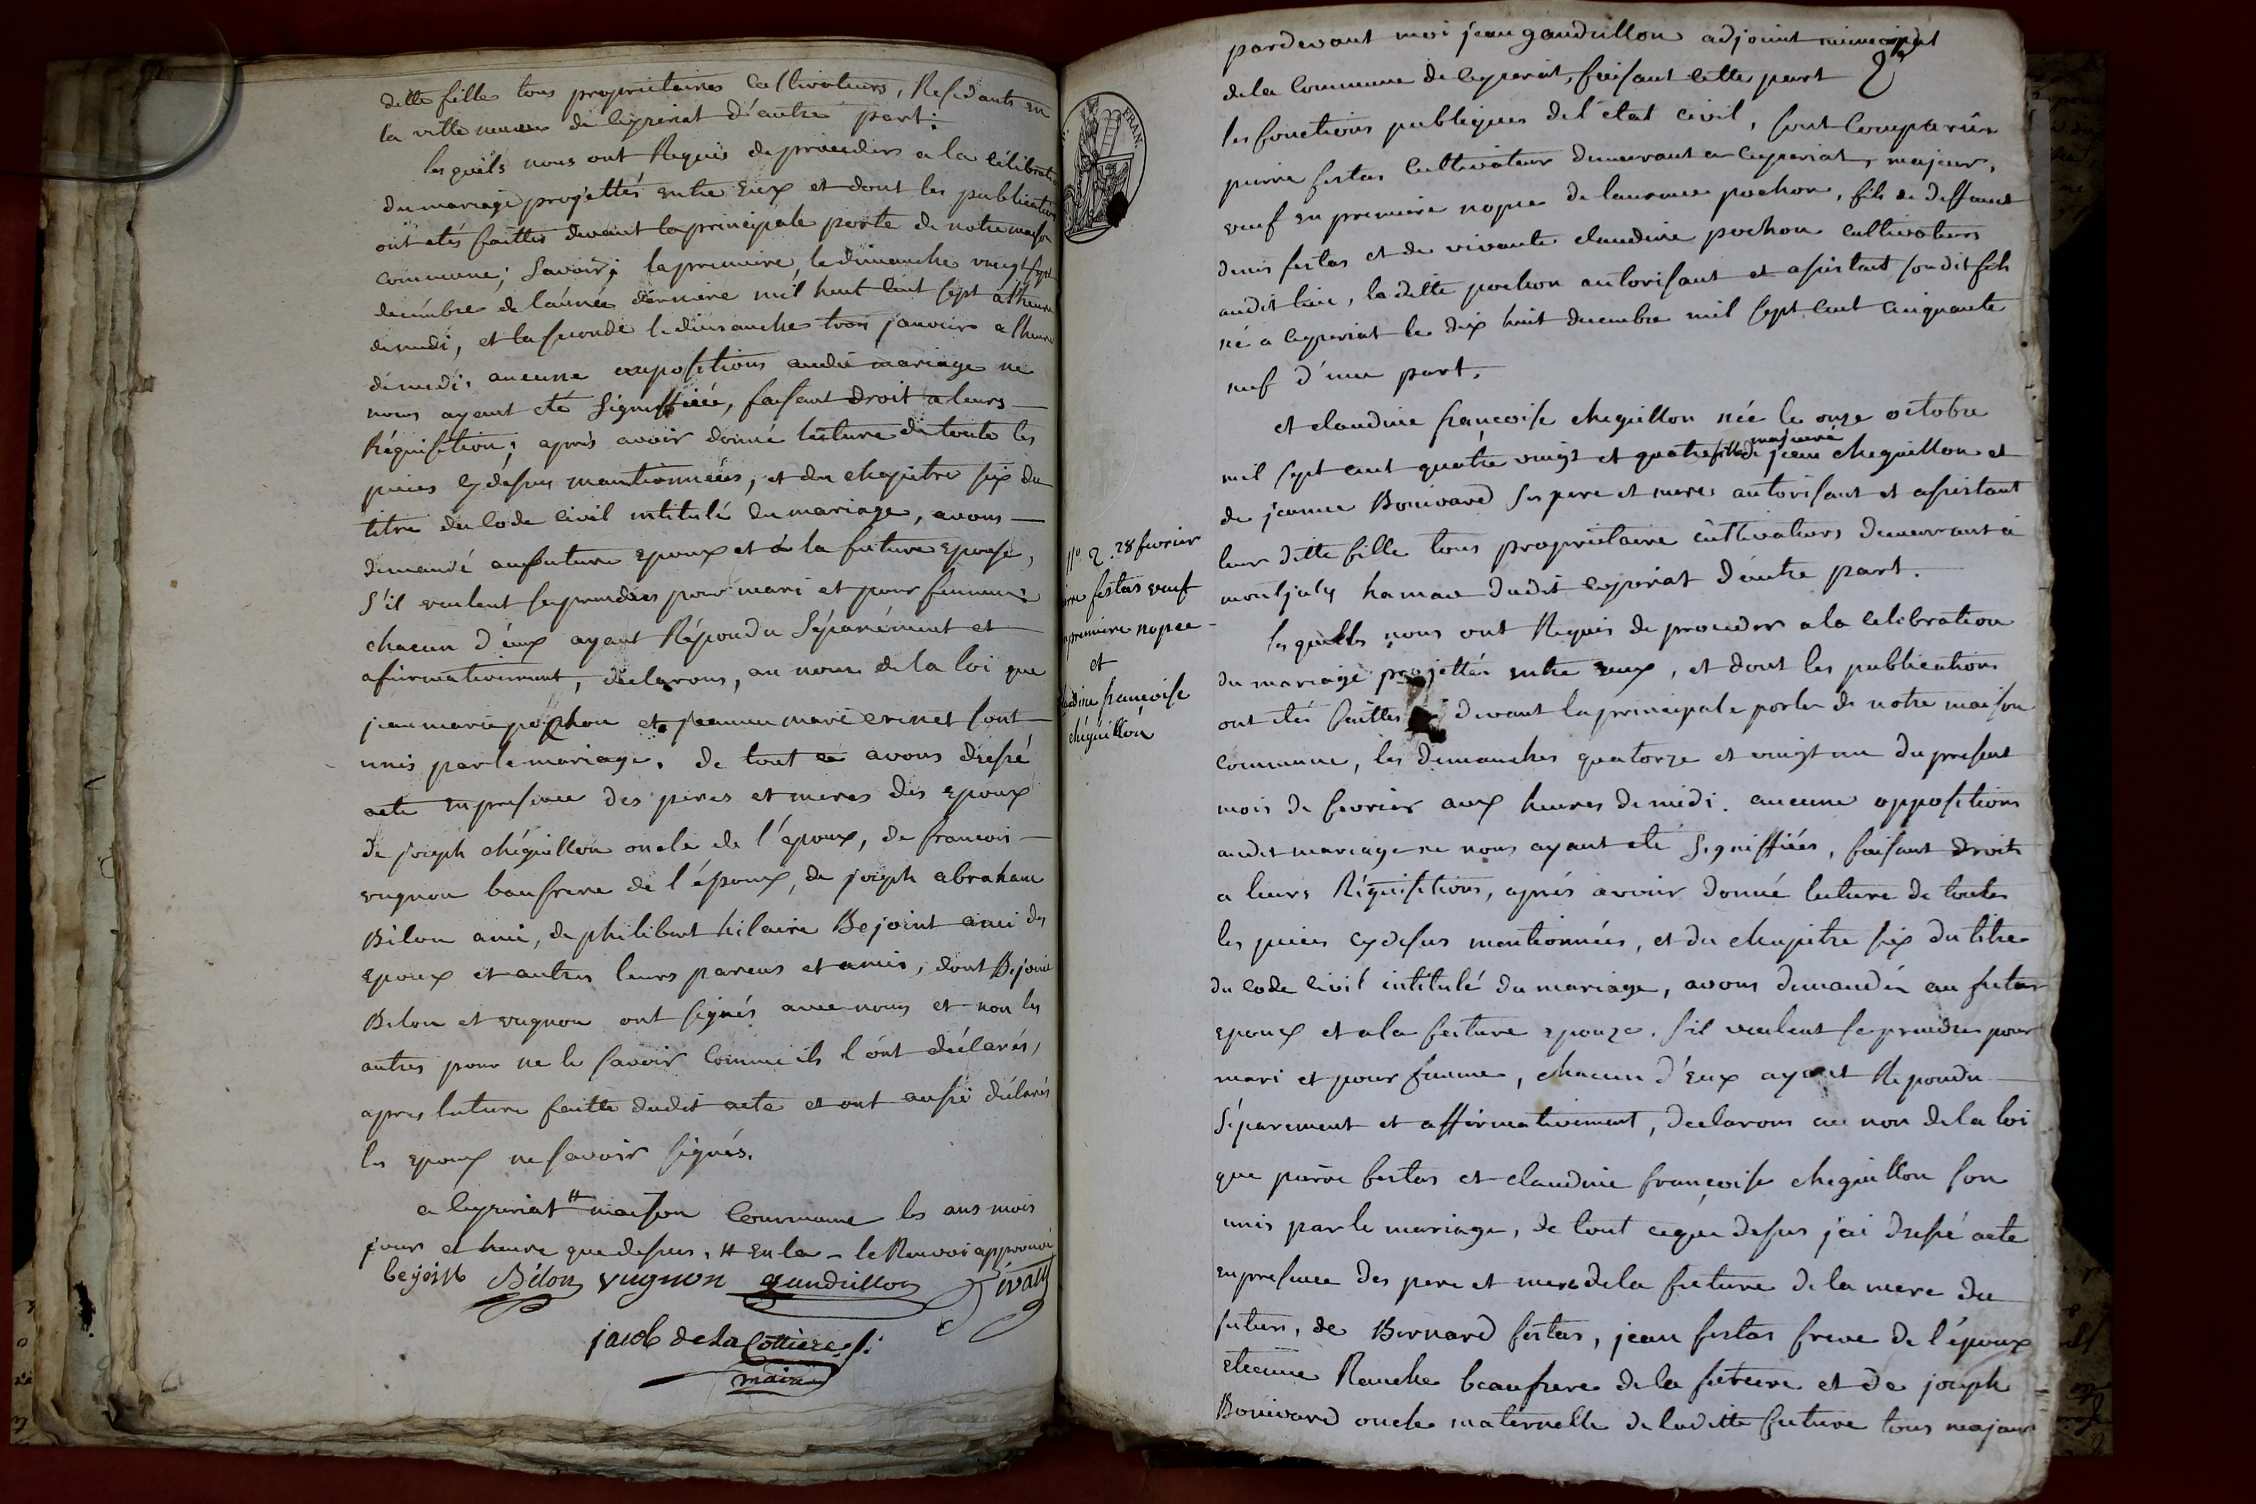 ditte fille tous proprietaires Cultivateurs, Residants en
la ville neuve de ceyzeriat d'autre part:
lesquels nous ont Requis de proceder a la célébration
du mariage projettés entre Eux et dont les publications
ont etés faittes devant la principale porte de notre maison
commune; Savoir; la premiere, le dimanche vingt sept
decembre de l'année derniere mil huit cent sept a l'heure
de midi, et la seconde le dimanche trois janvier a l'heure
de midi, aucune oppositions audit mariage ne
nous ayant eté Signiffiée, faisant droit a leurs
Réquisition; après avoir donné lecture de toute les
pieces cy désus mantionneés, et du chapitre six du
titre du Code Civil intitulé du mariage, avons
demandé au future Epoux et à la future Epouse,
S'il veulent se prendres pour mari et pour femme;
chacun d'éux ayant Répondu Séparément et
afirmativement, declarons, au nom de la loi que
jean marie pochon et jeanne marie crinet sont
unis par le mariage. de tout ce avons dressé
acte en presence des peres et meres des epoux
de joseph chéguillon oncle de l'époux, de francois
vugnon baufrere de l'époux, de joseph abraham
Bilon ami, de philibert hilaire Bejoint ami des
epoux et autres leurs parens et amis, dont Bejoint
Bilon et vugnon ont signés avec nous et non les
autres pour ne le savoir comme ils l'ont déclarés,
apres lecture faitte dudit acte et ont aussi déclarés
les epoux ne savoir signés.
a ceyzeriat # maison Commune les ans mois
jour et heure que desus, # En la - le Renvoi approuvé
bejoint Bilon vugnon gandrillon
jacob de la Cottiere
maire
FRAN.
N° 2. 28 fevrier
festas veuf
premiere nopce
et
francoise
chéguillon
pardevant moi jean gandrillon adjoint municipal
de la Commune de ceyzeriat, faisant cette part
les fonctions publiques de l'état civil, sont Comparûs
pierre festas cultivateur demeurant a ceyzeriat, majeur,
veuf en premiere nopce de laurence pochon, fils de deffunt
denis festas et de vivante claudine pochon cultivateurs
audit lieu, la ditte pochon autorisant et assistant son dit fils
né a ceyzeriat le dix huit decembre mil sept cent cinquante
neuf d'une part.
et claudine françoise cheguillon née le onze octobre
majeure
mil sept cent quatre vingt et quatre fille de jean cheguillon et
de jeanne Bonivard ses pere et mere autorisant et assistant
leur ditte fille tous proprietaire cûltivateurs demeurant à
montjuly hamau dudit ceyzeriat d'autre part.
lesquelles nous ont Requis de proceder a la celebration
du mariage projettés entre eux, et dont les publications
ont etés faittes devant la principale porte de notre maison
commune, les dimanches quatorze et vingt un du present
mois de fevrier aux heures de midi. aucune oppositions
audit mariage ne nous ayant eté signiffiées, faisant droit
a leurs Réquisitions, aprés avoir donné lecture de toutes
les pieces cy desus mentionnées, et du chapitre six du titre
du code civil intitulé du mariage, avons demandés au futur
epoux et a la future epouze. s'il veulent se prendre pour
mari et pour femme, chacun d'Eux ayant Repondu
séparement et affirmativement, declarons au nom de la loi
que pierre festas et claudine françoise cheguillon son
unis par le mariage, de tout ce que desus j'ai dressé acte
en presence des pere et mere de la future de la mere du
futur, de Bernard festas, jean festas frere de l'époux
etienne Ranche beaufrere de la future et de joseph
Bonivard oncle maternelle de laditte future tous majeurs